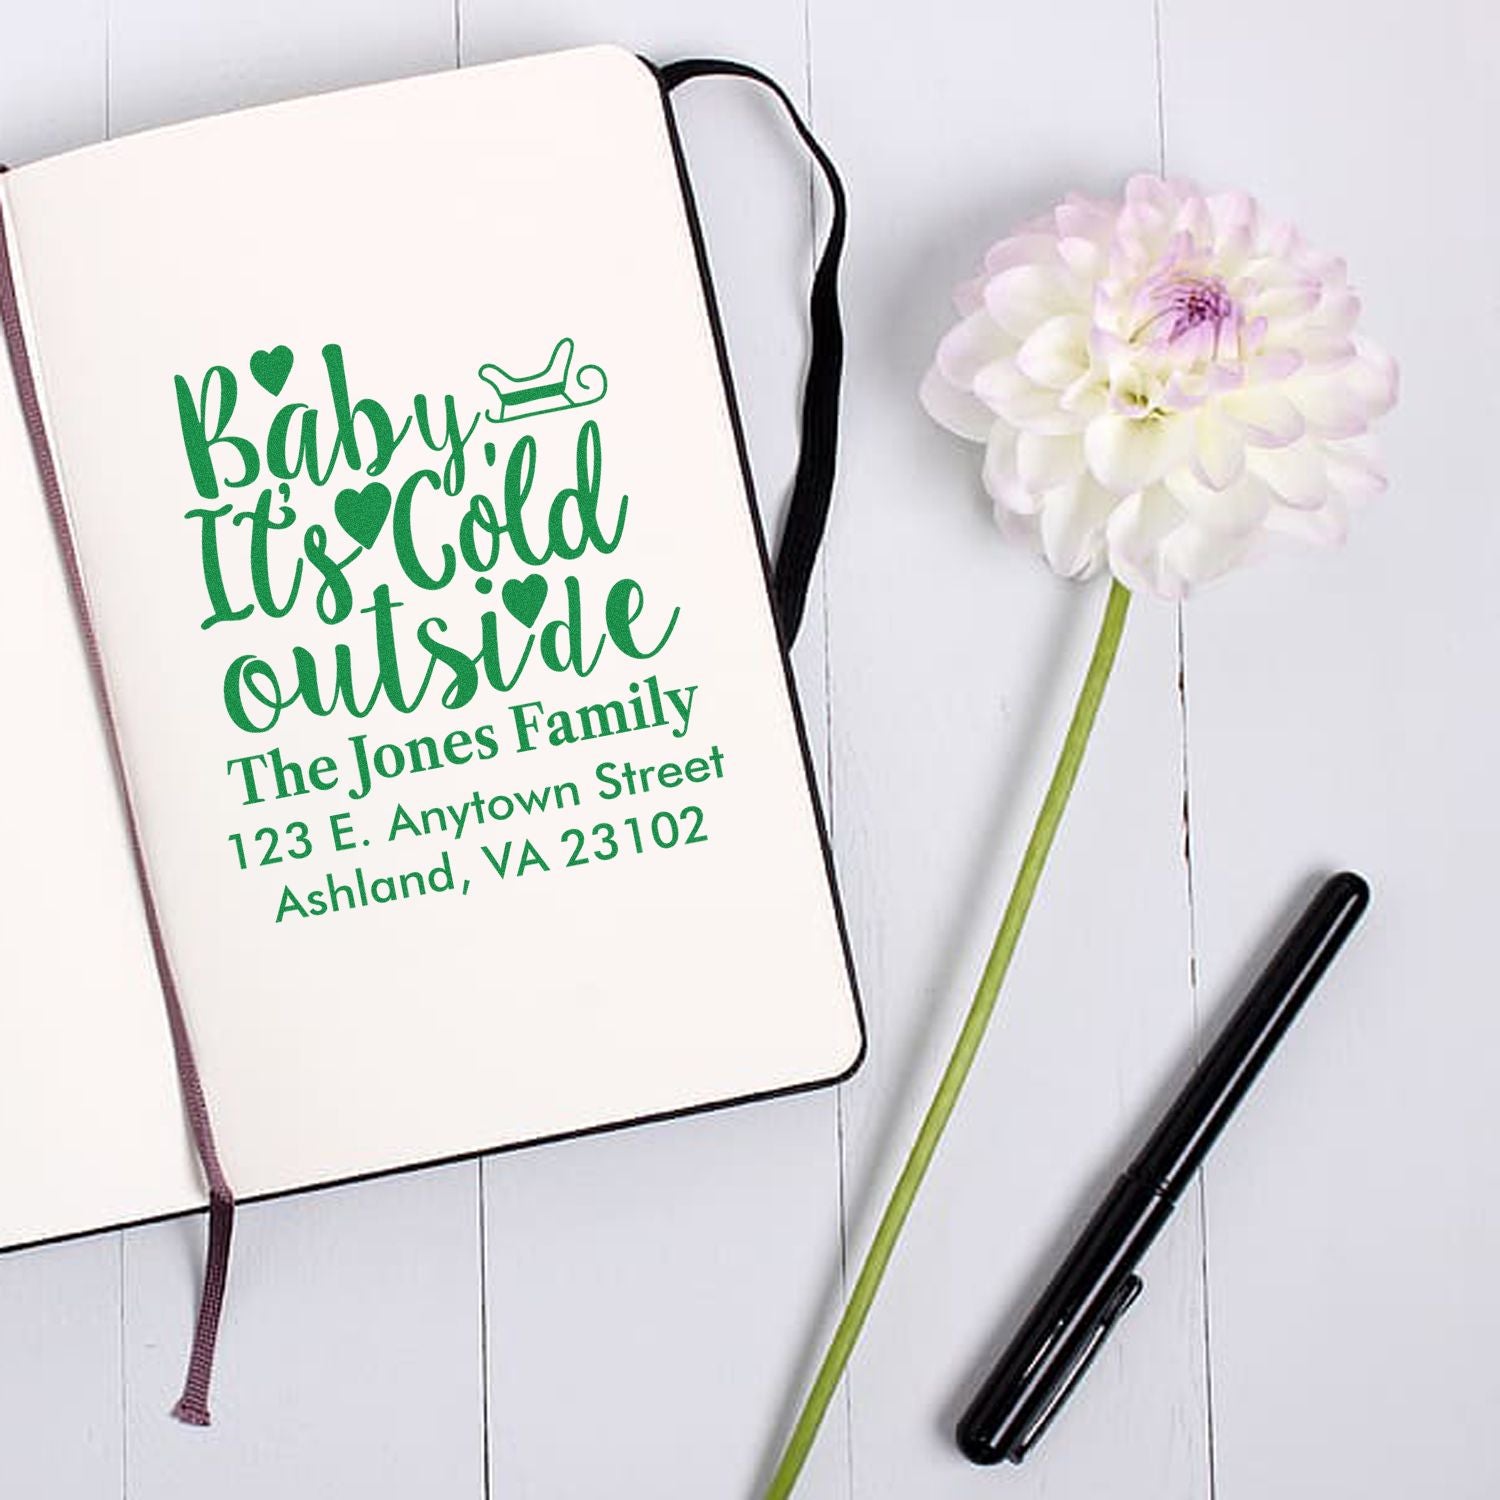 Baby,
It's Cold
outside
The Jones Family
123 E. Anytown Street
Ashland, VA 23102